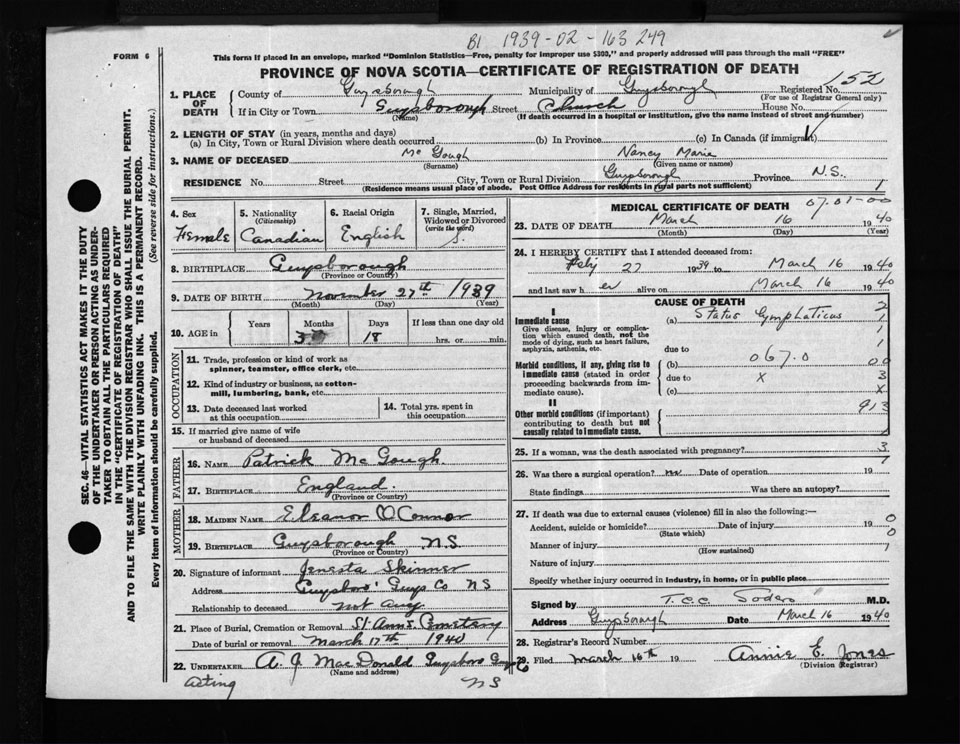 B1 1939-02-163249
FORM 6
This form if placed in an envelope, marked "Dominion Statistics—Free, penalty for improper use $300," and properly addressed will pass through the mail "FREE"
PROVINCE OF NOVA SCOTIA—CERTIFICATE OF REGISTRATION OF DEATH
1. PLACE OF DEATH
County of Guysborough Municipality of Guysborough Registered No. 152
(For use of Registrar General only)
If in City or Town Guysborough Street Church House No.
(Name) (If death occurred in a hospital or institution, give the name instead of street and number)
2. LENGTH OF STAY (in years, months and days)
(a) In City, Town or Rural Division where death occurred (b) In Province (c) In Canada (if immigrant)
3. NAME OF DECEASED Mc Gough Nancy Marie
(Surname) (Given name or names)
RESIDENCE No. Street City, Town or Rural Division Guysborough Province N.S. 1
(Residence means usual place of abode. Post Office Address for residents in rural parts not sufficient)
4. Sex
Female
5. Nationality
(Citizenship)
Canadian
6. Racial Origin
English
7. Single, Married, Widowed or Divorced
(write the word)
S.
8. BIRTHPLACE Guysborough
(Province or Country)
9. DATE OF BIRTH November 27th 1939
(Month) (Day) (Year)
10. AGE in Years Months Days If less than one day old
3 18 hrs. or min.
OCCUPATION
11. Trade, profession or kind of work as
spinner, teamster, office clerk, etc.
12. Kind of industry or business, as cotton-
mill, lumbering, bank, etc.
13. Date deceased last worked
at this occupation
14. Total yrs. spent in
this occupation
15. If married give name of wife
or husband of deceased
FATHER
16. NAME Patrick McGough
17. BIRTHPLACE England.
(Province or Country)
MOTHER
18. MAIDEN NAME Eleanor O'Connor
19. BIRTHPLACE Guysborough N.S
(Province or Country)
20. Signature of informant Jenesta Skinner
Address Guysboro' Guys Co NS
Relationship to deceased not any
21. Place of Burial, Cremation or Removal St. Ann's Cemetery
Date of burial or removal March 17th 1940
22. UNDERTAKER A. J MacDonald Guysboro Guys Co
(Name and address)
acting NS
MEDICAL CERTIFICATE OF DEATH 07.01-00
23. DATE OF DEATH March 16 1940
(Month) (Day) (Year)
24. I HEREBY CERTIFY that I attended deceased from:
Feby 27 1939 to March 16 1940
and last saw her alive on March 16 1940
CAUSE OF DEATH
I
Immediate cause
Give disease, injury or complica-
tion which caused death, not the
mode of dying, such as heart failure,
asphyxia, asthenia, etc.
(a) Status Lymphaticus
due to
Morbid conditions, if any, giving rise to
immediate cause (stated in order
proceeding backwards from im-
mediate cause).
(b) 067.0
due to x
(c)
2
1
1
00
3
X
II
Other morbid conditions (if important)
contributing to death but not
causally related to immediate cause.
913
25. If a woman, was the death associated with pregnancy? 3
26. Was there a surgical operation? no Date of operation 19
State findings Was there an autopsy?
27. If death was due to external causes (violence) fill in also the following:—
Accident, suicide or homicide? Date of injury 19 0
(State which) 0
Manner of injury 1
(How sustained)
Nature of injury
Specify whether injury occurred in industry, in home, or in public place
Signed by T.C.C Sodero M.D.
Address Guysborough Date March 16 1940
28. Registrar's Record Number
29. Filed March 16th 19 Annie E. Jones
(Division Registrar)
SEC. 46—VITAL STATISTICS ACT MAKES IT THE DUTY
OF THE UNDERTAKER OR PERSON ACTING AS UNDER-
TAKER TO OBTAIN ALL THE PARTICULARS REQUIRED
IN THE "CERTIFICATE OF REGISTRATION OF DEATH"
AND TO FILE THE SAME WITH THE DIVISION REGISTRAR WHO SHALL ISSUE THE BURIAL PERMIT.
WRITE PLAINLY WITH UNFADING INK. THIS IS A PERMANENT RECORD.
Every item of Information should be carefully supplied. (See reverse side for instructions.)